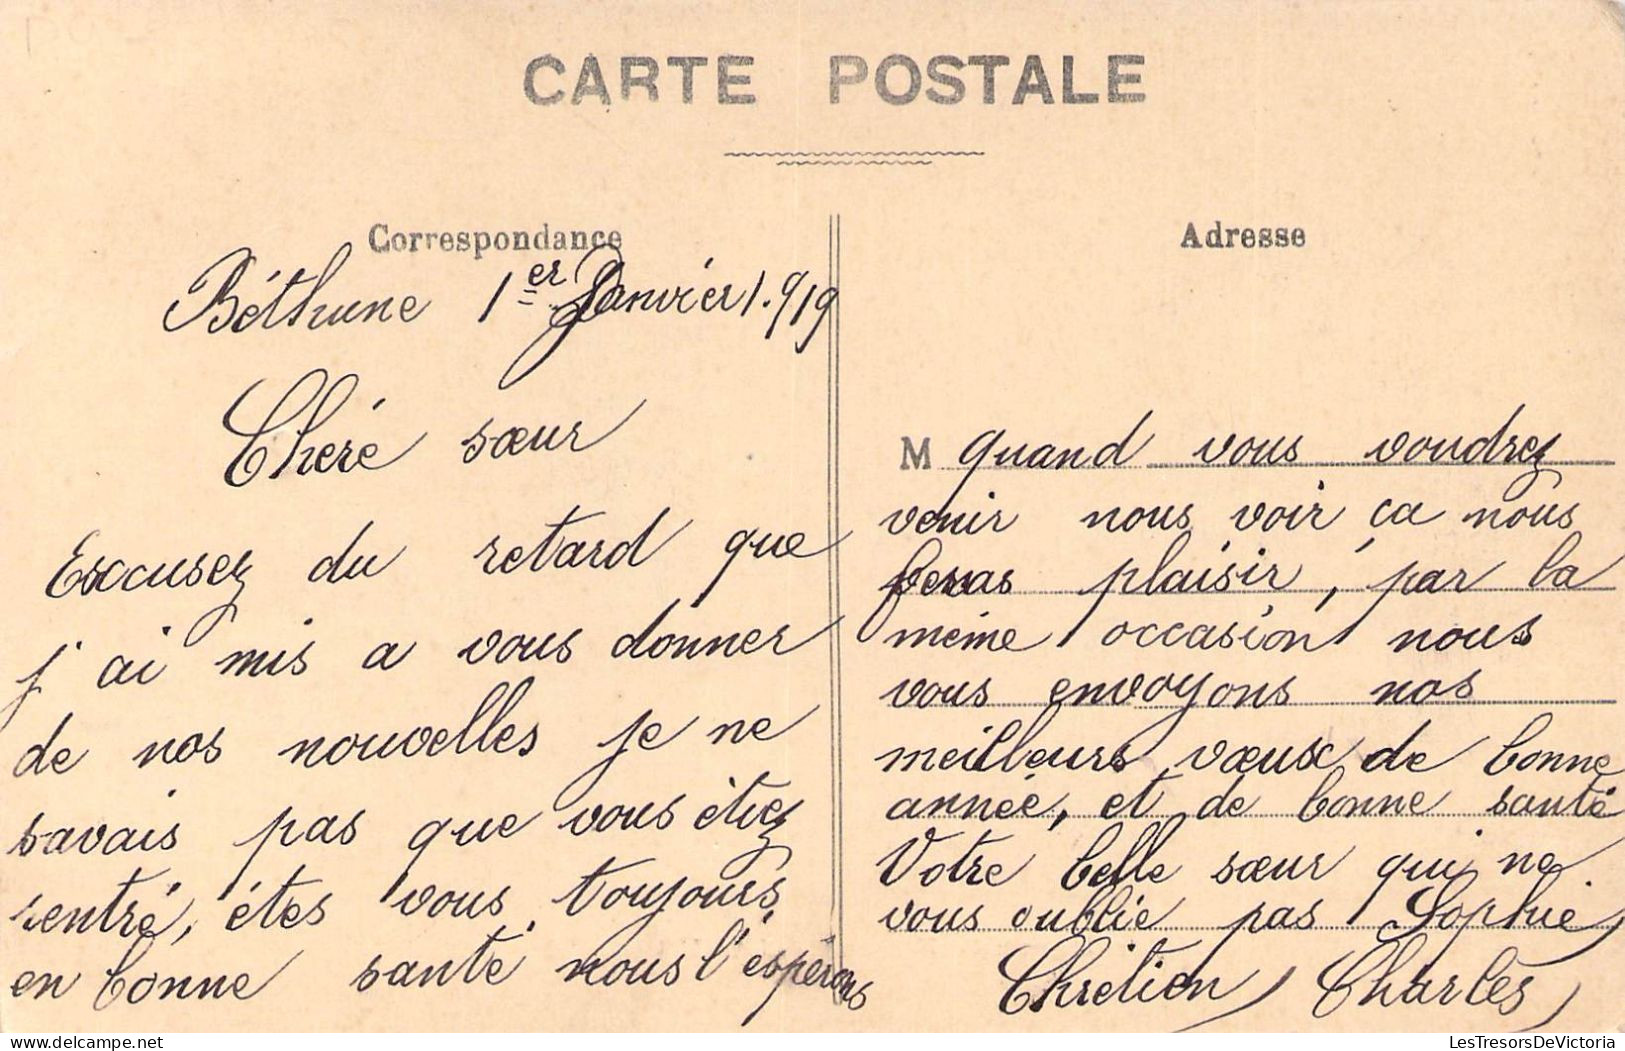 CARTE POSTALE
Correspondance
Béthune 1er Janvier 1.919
Cheré sœur
Excusez du retard que
j'ai mis a vous donner
de nos nouvelles je ne
savais pas que vous étiez
rentré, étes vous toujours
en bonne santé nous l'éspérons
Adresse
M quand vous voudrez
venir nous voir ça nous
feras plaisir, par la
méme occasion nous
vous envoyons nos
meilleurs vœux de bonne
année, et de bonne santé
Votre belle sœur qui ne
vous oublie pas Sophie,
Chrétien, Charles,
LesTresorsDeVictoria